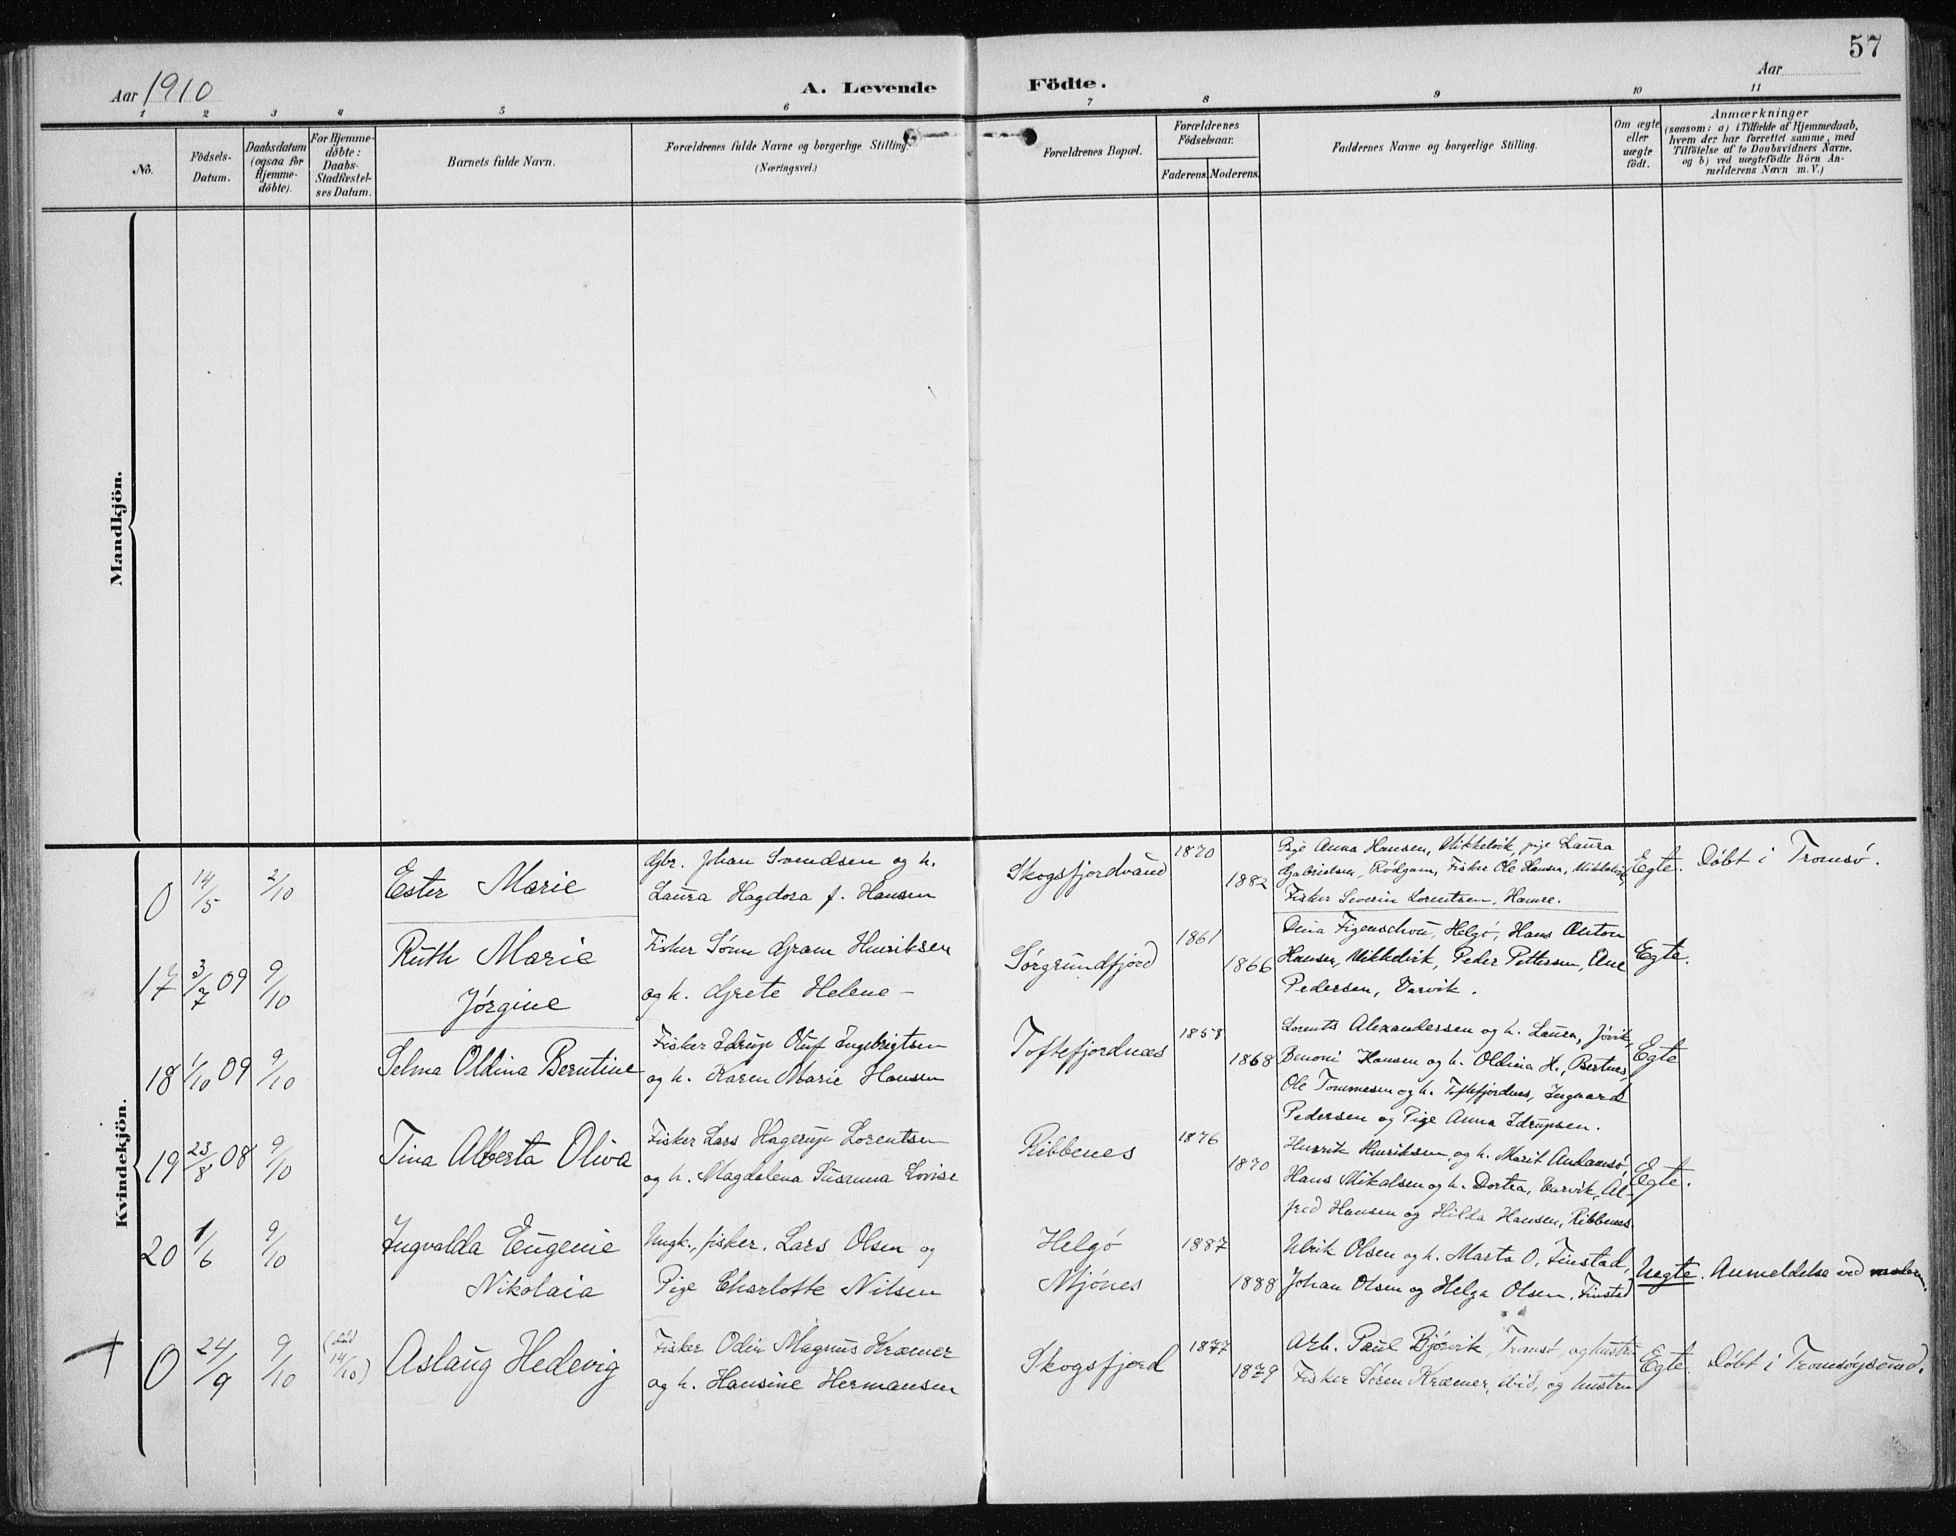 57
Aar 1910
A. Levende Födte.
Aar
1 2 3 4 5 6 7 8 9 10 11
No.
Födsels-
Datum.
Daabsdatum
(ogsaa for
Hjemme-
döbte).
For Hjemme-
döbte:
Daabs-
Stadfæstel-
ses Datum.
Barnets fulde Navn.
Forældrenes fulde Navne og borgerlige Stilling.
(Næringsvei.)
Forældrenes Bopæl.
Forældrenes
Födselsaar.
Faderens. Moderens.
Faddernes Navne og borgerlige Stilling.
Om ægte
eller
uægte
födt.
Anmærkninger
(saasom: a) i Tilfælde af Hjemmedaab,
hvem der har forrettet samme, med
Tilföielse af to Daabsvidners Navne,
og b) ved uægtefödte Börn An-
melderens Navn m. V.)
Mandkjön.
Kvindekjön.
0 14/5 2/10
Ester Marie
Gbr. Johan Svendsen og h.
Laura Hagdora f. Hansen
Skogsfjordvand
1870
1882
Pige Anna Hansen, Mikkelvik, pige Laura
Gabrielsen, Rödgam, Fisker Ole Hansen, Mikkelvik,
Fisker Severin Lorentsen, Hamre.
Egte.
Döbt i Tromsø.
17 3/7 09 9/10
Ruth Marie
Jørgine
Fisker Sönn Gram Henriksen
og h. Grete Helene -
Sørgrundfjord
1861
1866
Dina Figenschou, Helgø, Hans Anton
Hansen, Mikkelvik, Peder Pettersen, Ane
Pedersen, Varvik.
Egte.
18 1/10 09 9/10
Selma Oldina Berntine
Fisker Idrup Oluf Ingebrigtsen
og h. Karen Marie Hansen
Toftefjordnæs
1858
1868
Lorents Alexandersen og h. Laura, Jövik,
Benoni Hansen og h. Oldina H., Bertnes,
Ole Tommesen og h. Toftefjordnes, Ingvard
Pedersen og Pige Anna Idrupsen.
Egte
19 23/8 08 9/10
Tina Alberta Oliva
Fisker Lars Hagerup Lorentsen
og h. Magdalena Susanna Lovise
Ribbenes
1876
1870
Henrik Henriksen og h. Marit
Hans Mikalsen og h. Dortea, Varvik, Al-
fred Hansen og Hilda Hansen, Ribbenes
Egte.
20 1/6 9/10
Ingvalda Eugenie
Nikolaia
Ungk., fisker. Lars Olsen og
Pige Charlotte Nilsen
Helgø
Mjönes
1887
1888
Ulrik Olsen og h. Marta O. Finstad,
Johan Olsen og Helga Olsen, Finstad
Uegte.
Anmeldelse ved moderen.
0 24/9 9/10 (död 14/10)
Aslaug Hedevig
Fisker Odin Magnus Kræmer
og h. Hansine Hermansen
Skogsfjord
1877
1879
Arb. Paul Bjørvik, Tromsø, og hustru
Fisker Søren Kræmer, ibid, og hustru
Egte.
Döbt i Tromsøysund.